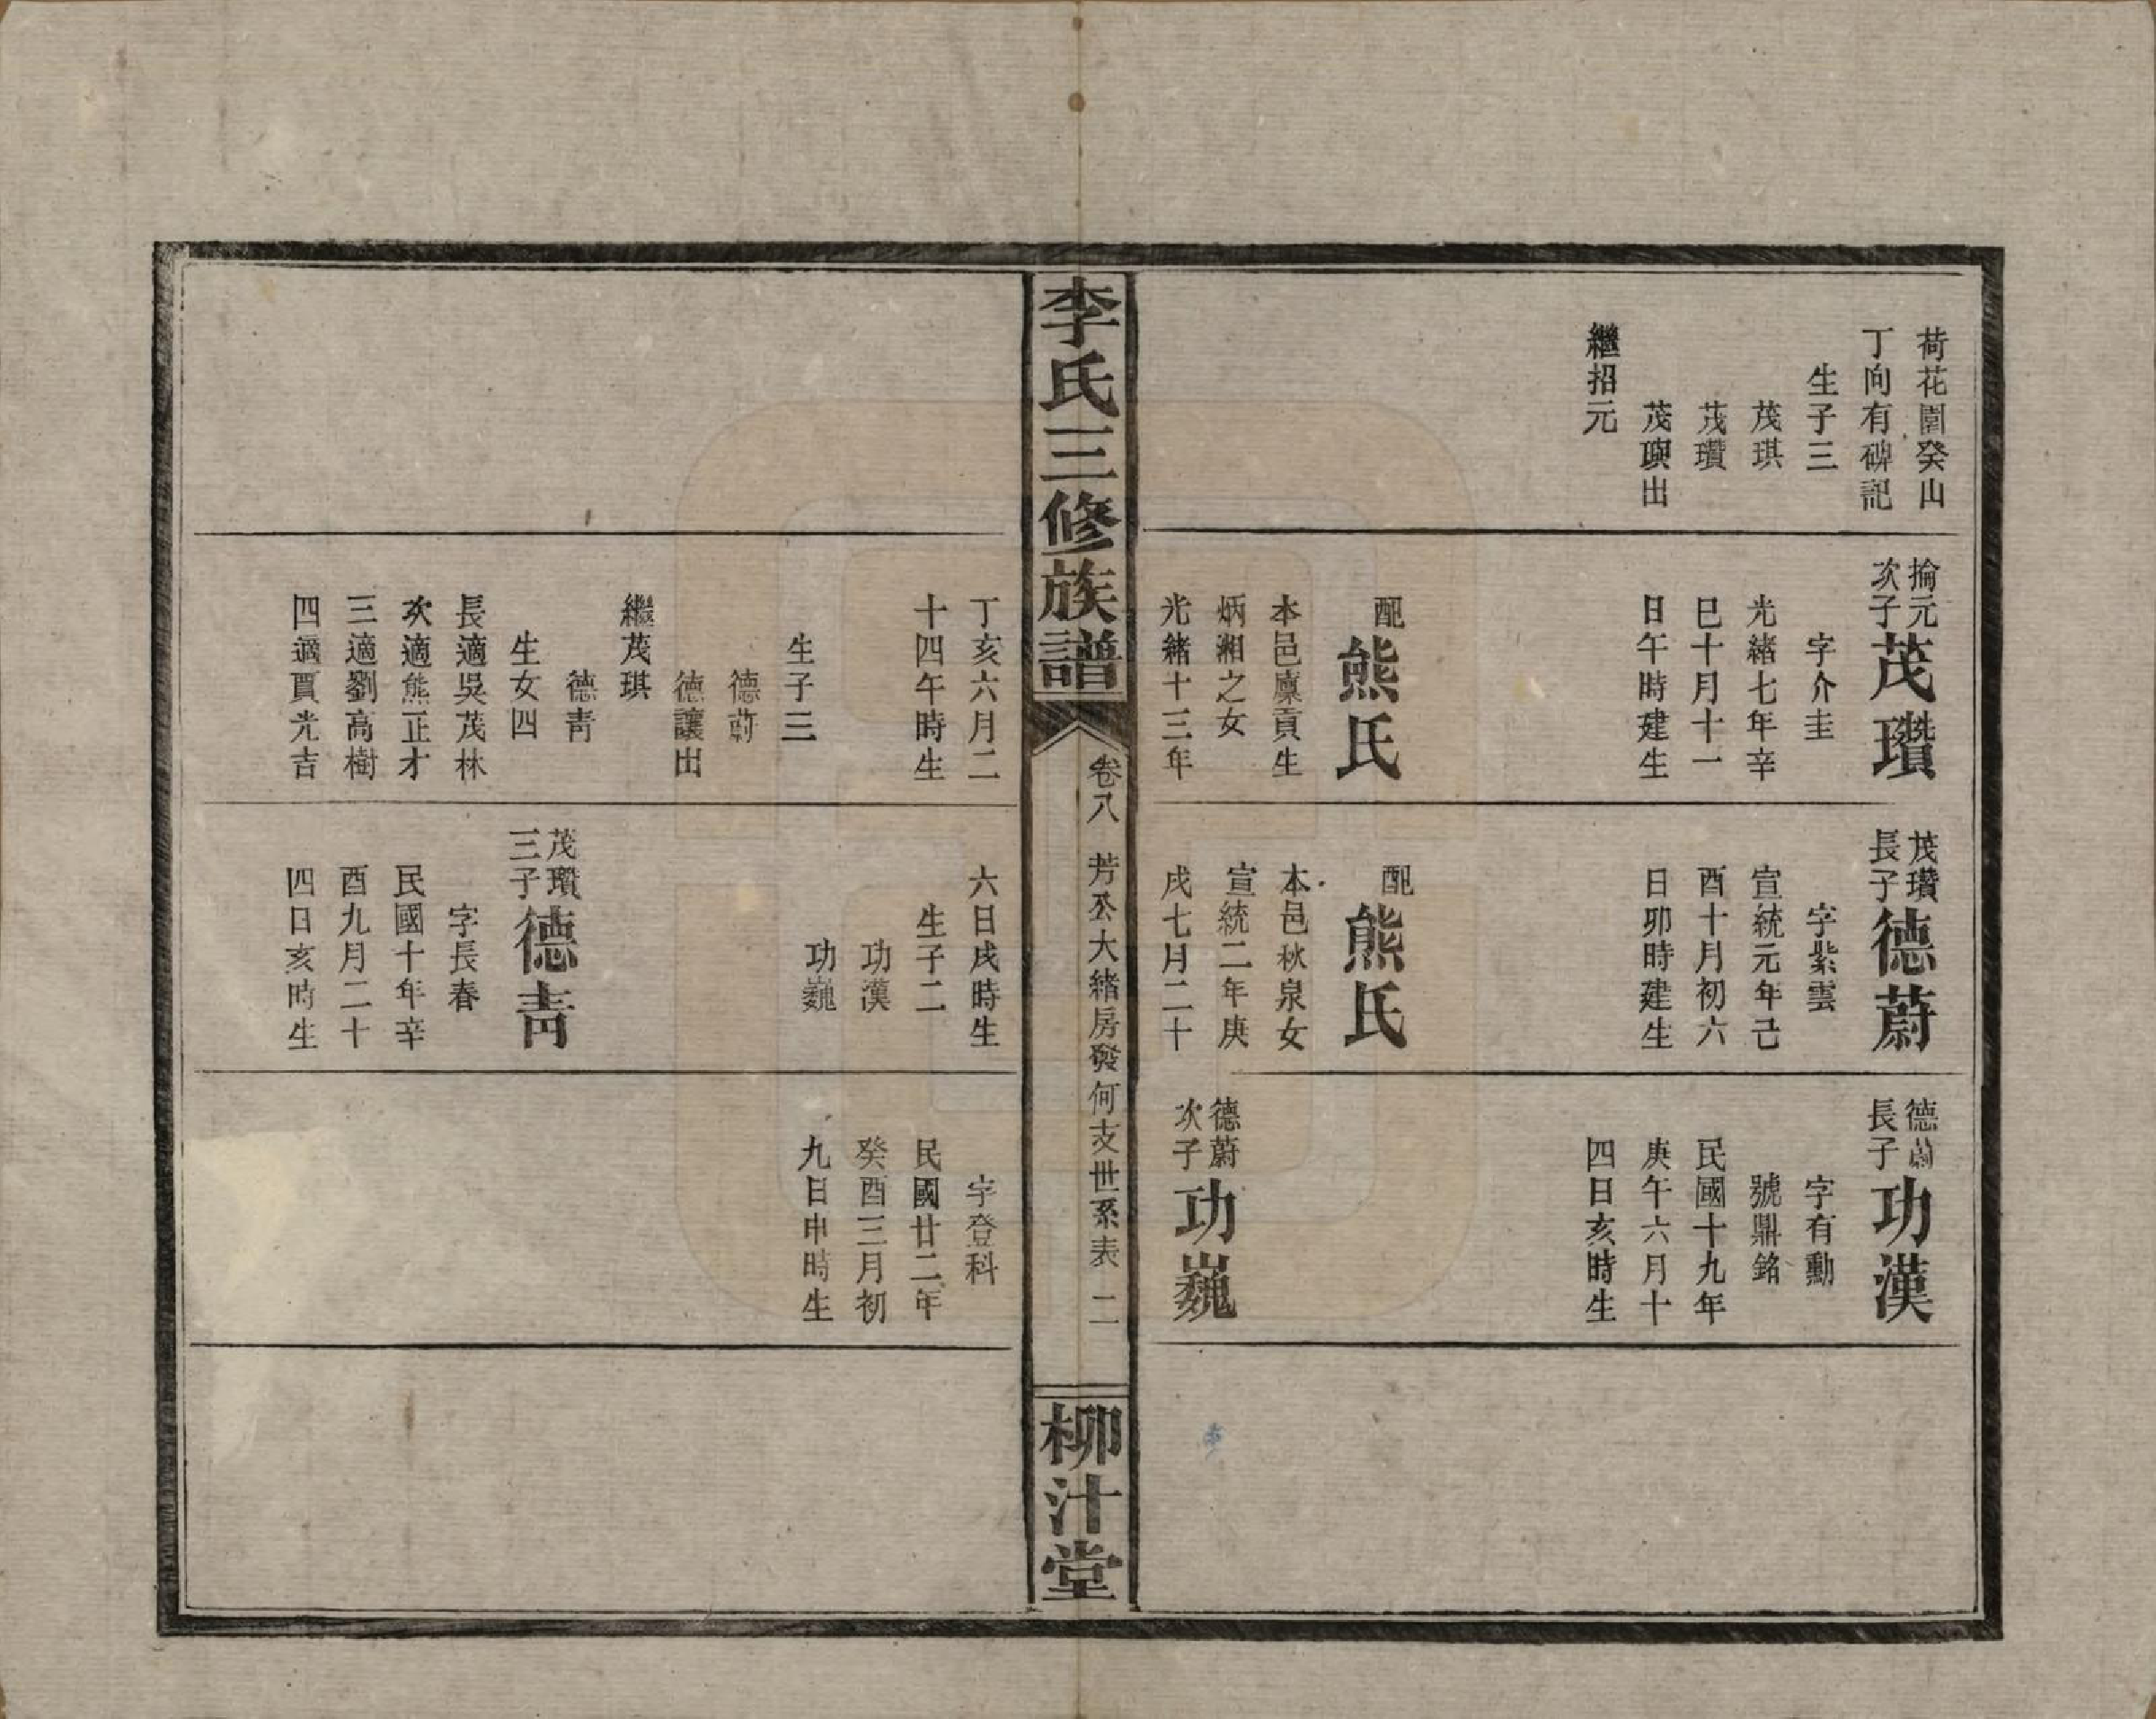 荷花園癸山
丁向有碑記
生子三
茂琪
茂瓚
茂璵出
繼招元
掄元
次子
茂瓚
字介圭
光緒七年辛
巳十月十一
日午時建生
配
熊氏
本邑廩貢生
炳湘之女
光緒十三年
茂瓚
長子
德蔚
字紫雲
宣統元年己
酉十月初六
日卯時建生
配
熊氏
本邑秋泉女
宣統二年庚
戌七月二十
德蔚
長子
功漢
字有勳
號鼎銘
民國十九年
庚午六月十
四日亥時生
德蔚
次子
功巍
李氏三修族譜
卷八 芳公大緒房發何支世系表 二
柳汁堂
丁亥六月二
十四午時生
生子三
德蔚
德讓出
繼茂琪
德青
生女四
長適吳茂林
次適熊正才
三適劉高樹
四適賈光吉
六日戌時生
生子二
功漢
功巍
茂瓚
三子
德青
字長春
民國十年辛
酉九月二十
四日亥時生
字登科
民國廿二年
癸酉三月初
九日申時生